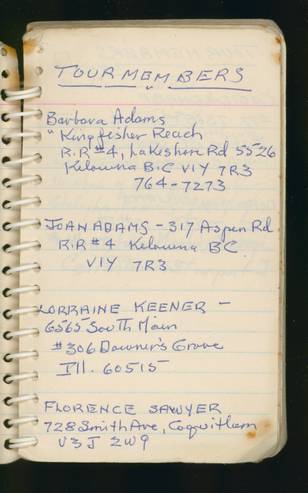 TOUR MEMBERS
Barbara Adams
"Kingfesher Reach
R.R #4, Lakeshore Rd 5526
Kelowna B.C V1Y 7R3
764-7273
JOAN ADAMS - 317 Aspen Rd.
R.R #4 Kelowna BC
V1Y 7R3
LORRAINE KEENER -
6565 South Main
#306 Downer's Grove
Ill. 60515
FLORENCE SAWYER
728 Smith Ave, Coquitlam
V3J 2W9